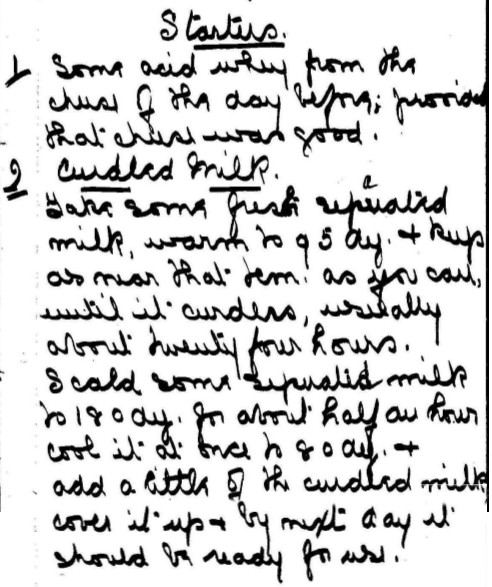 Starters.
1 Some acid whey from the
cheese of the day before; provided
that cheese was good.
2 Curdled Milk.
Take some fresh separated
milk, warm to 95 deg. + keep
as near that tem: as you can,
until it curdles, usually
about twenty four hours.
Scald some separated milk
to 180 deg. for about half an hour
cool it at once to 80 deg. +
add a little of the curdled milk
cover it up + by next day it
should be ready for use.